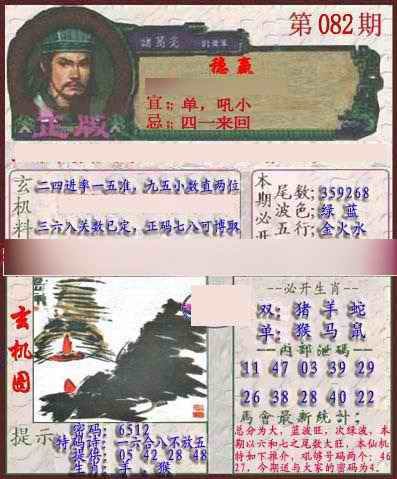 第082期
諸葛亮
穩贏
宜:單,吼小
忌:四一来回
正版
玄机料
二四进率一五准,九五小数直两位
三六八关数已定,正码七八可博取
本期必开
尾数:359268
波色:绿 蓝
五行:金火水
玄机图
--必开生肖--
双:猪 羊 蛇
单:猴 马 鼠
内部泄码
11 47 03 39 29
26 38 28 40 22
提示
密码:6512
特码诗:一六合八不放五
提倍:05 42 28 48
生肖:羊、猴
馬會最新統計:
总分为大,蓝波旺,次绿波,本
期以六和七之尾数大旺,本仙机
特如下推介,吼够号码两个:46
27,今期送与大家的密码为4.